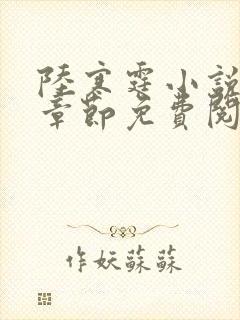 陸寒霆小說
章節免費閱
作妖蘇蘇